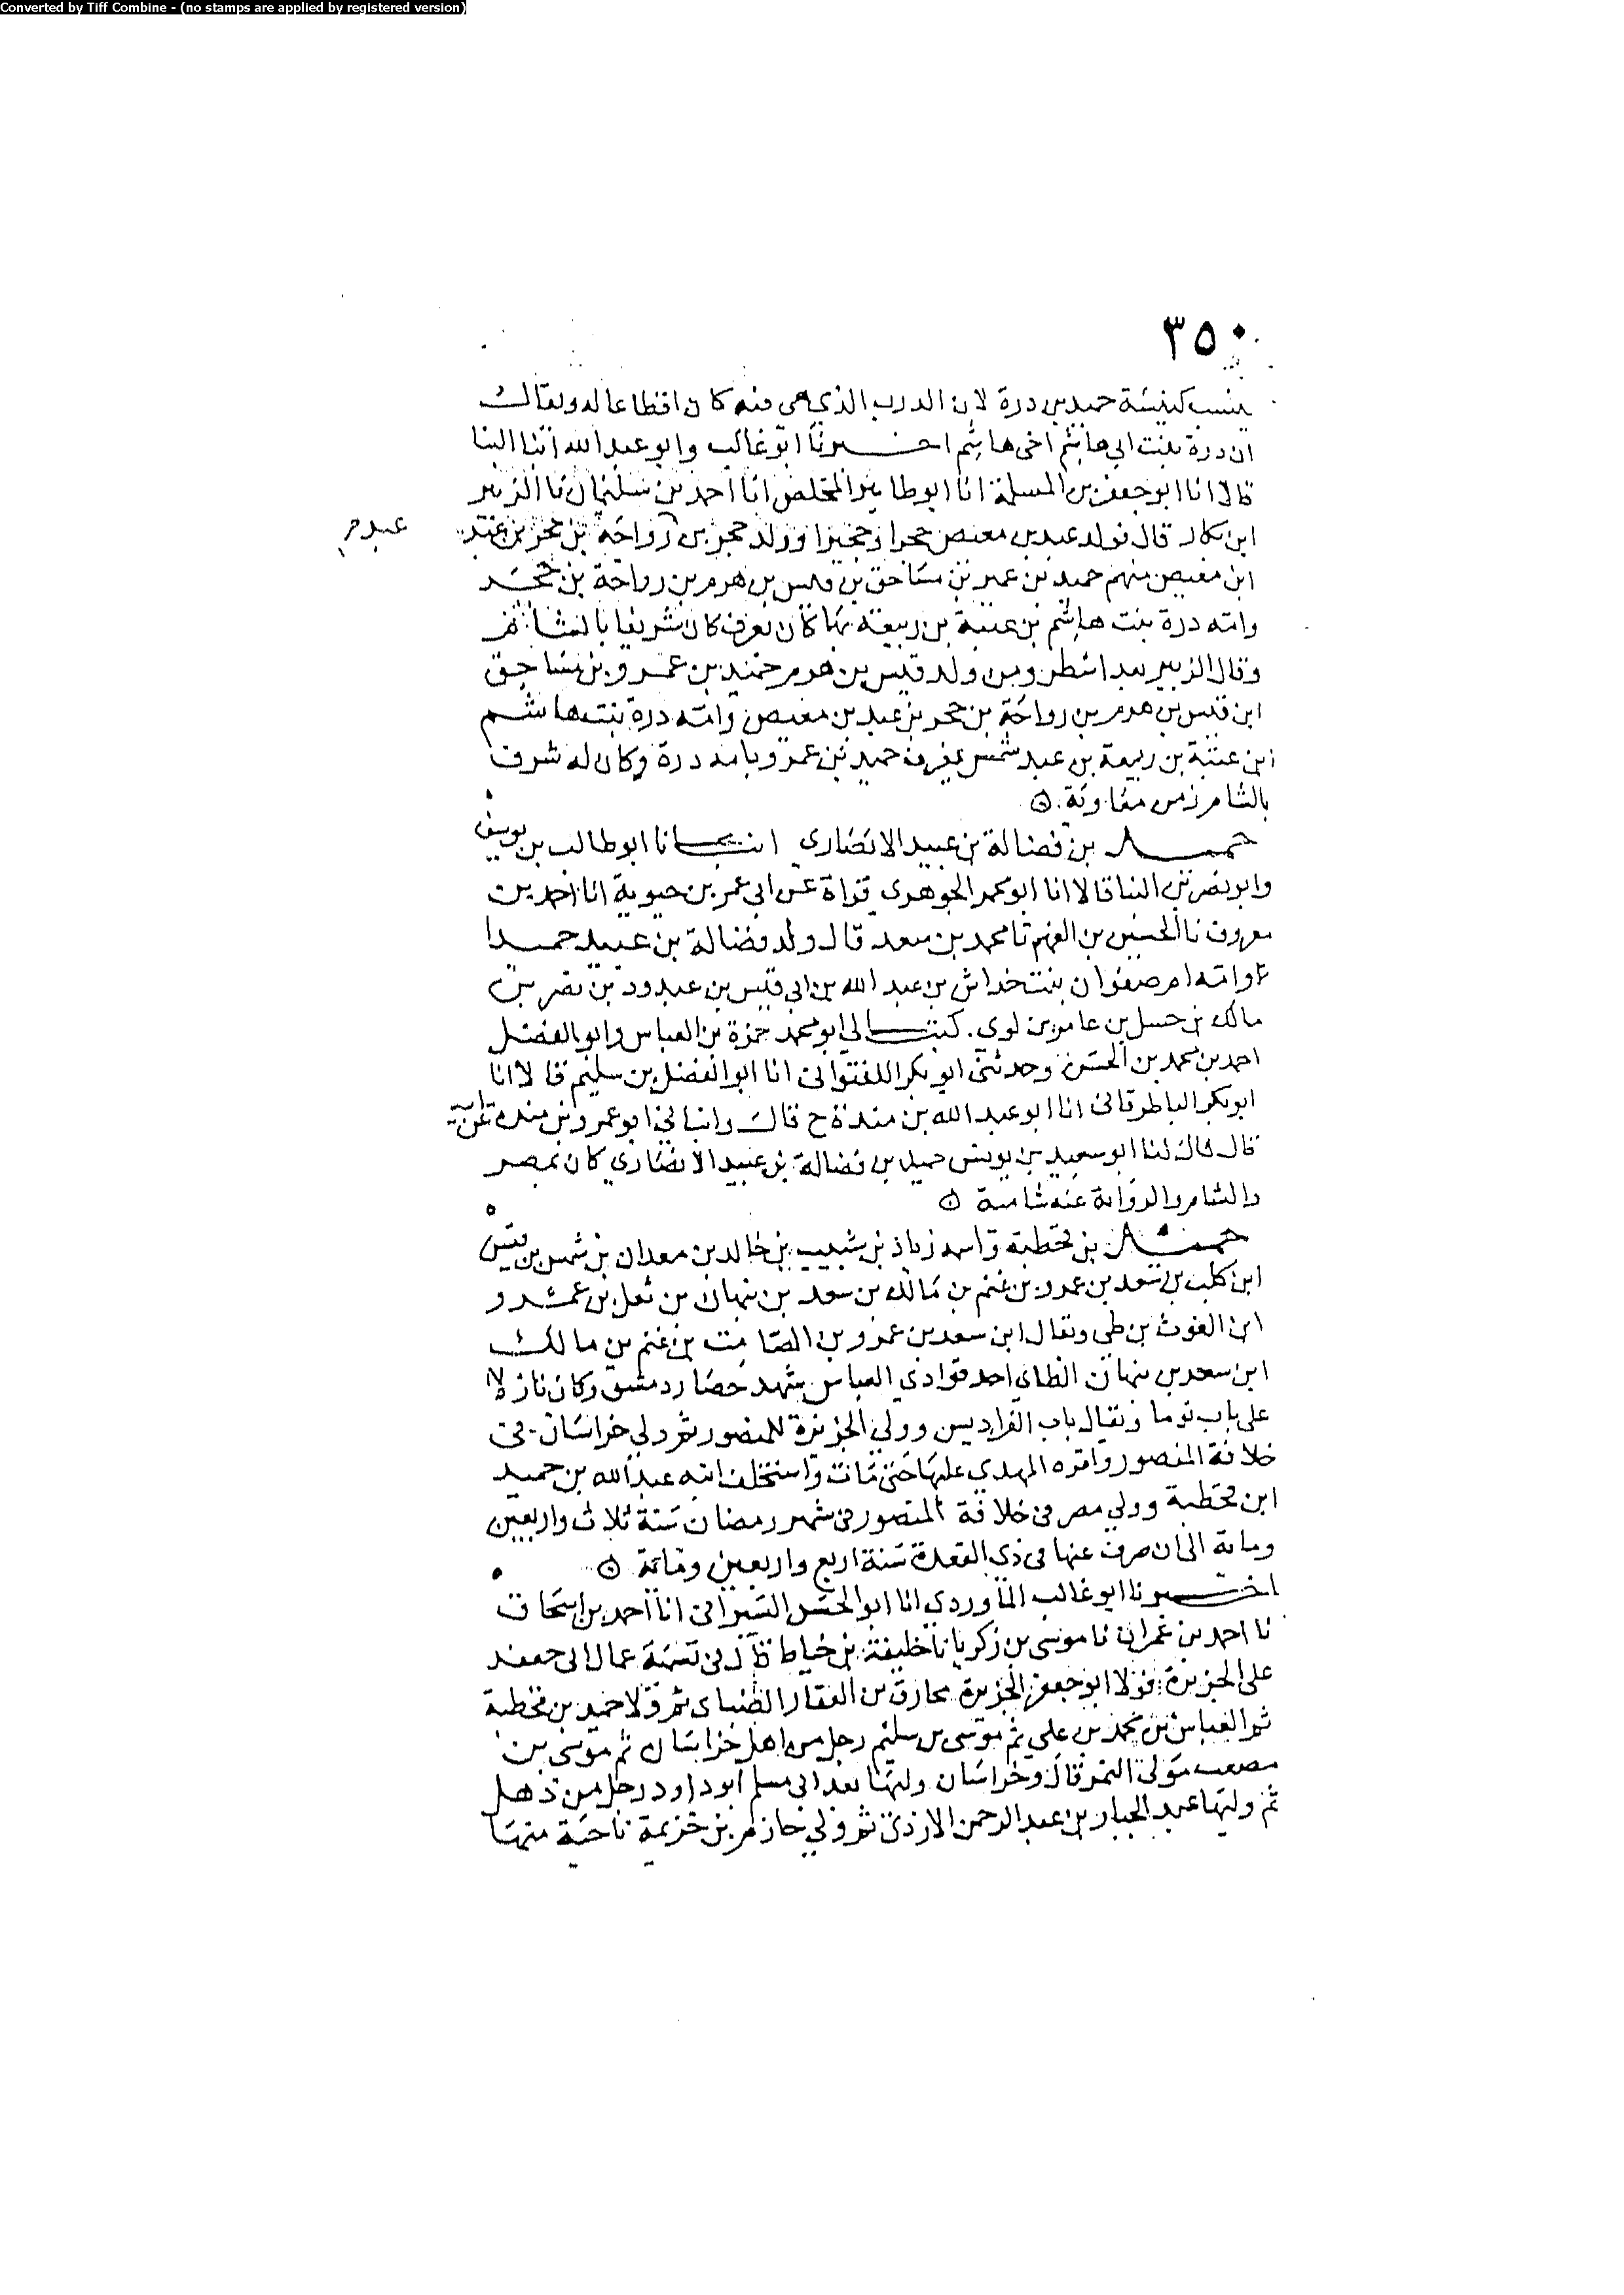 Converted by Tiff Combine - (no stamps are applied by registered version)
٣٥٠
ينسب كنيسة حميد بن درة لان الدرب الذي هي فيه كان اقطاعا له ويقال
ان درة بنت ابي هاشم اخي هاشم اخبرنا ابو غالب وابو عبد الله ابنا البنا
قالا انا ابو جعفر بن المسلمة انا ابو طاهر المخلص انا احمد بن سليمان نا الزبير
ابن بكار قال فولد عبد بن معيص حجرا وحجيرا وولد حجر بن رواحة بن حجر بن عبد
عبد م
ابن معيص منهم حميد بن عمرو بن مساحق بن قيس بن هرم بن رواحة بن حجر
وامه درة بنت هاشم بن عتبة بن ربيعة بها كان يعرف كان شريفا بالشام
وقال الزبير بعد اسطر ومن ولد قيس بن هرم حميد بن عمرو بن مساحق
ابن قيس بن هرم بن رواحة بن حجر بن عبد بن معيص وامه درة بنت هاشم
ابن عتبة بن ربيعة بن عبد شمس يعرف حميد بن عمرو بامه درة وكان له شرف
بالشام زمن معاوية
حميد بن فضالة بن عبيد الانصاري انبانا ابو طالب بن يوسف
وابو نصر بن البنا قالا انا ابو محمد الجوهري قراة عن ابي عمر بن حيوية انا احمد بن
معروف نا الحسين بن الفهم نا محمد بن سعد قال ولد فضالة بن عبيد حميدا
وامه ام صفوان بنت خداش بن عبد الله بن ابي قيس بن عبدود بن نصر بن
مالك بن حسل بن عامر بن لوي كتب الي ابو محمد حمزة بن العباس وابو الفضل
احمد بن محمد بن الحسن وحدثني ابو بكر اللفتواني انا ابو الفضل بن سليم قالا انا
ابو بكر الباطرقاني انا ابو عبد الله بن مندة ح قال وانباني ابو عمرو بن منده عن ابيه
قال قال لنا ابو سعيد بن يونس حميد بن فضالة بن عبيد الانصاري كان بمصر
والشام والرواية عنه شامية
حميد بن قحطبة واسمه زياد بن شبيب بن خالد بن معدان بن شمس بن قيس
ابن كلب بن سعد بن عمرو بن غنم بن مالك بن سعد بن نبهان بن ثعل بن عمرو
ابن الغوث بن طي ويقال ابن سعد بن عمرو بن الصامت بن غنم بن مالك
ابن سعد بن نبهان الطاي احد قواد بني العباس شهد حصار دمشق وكان نازلا
على باب توما ويقال باب الفراديس وولي الجزيرة للمنصور ثم ولي خراسان في
خلافة المنصور واقره المهدي عليها حتى مات واستخلف ابنه عبد الله بن حميد
ابن قحطبة وولي مصر في خلافة المنصور في شهر رمضان سنة ثلاث واربعين
وماية الى ان صرف عنها في ذي القعدة سنة اربع واربعين وماية
اخبرنا ابو غالب الماوردي انا ابو الحسن السيرافي انا احمد بن اسحاق
نا احمد بن عمران نا موسى بن زكريا نا خليفة بن خياط قال في تسمية عمال ابي جعفر
على الجزيرة فولا ابو جعفر الجزيرة مخارق بن العقار الطاي ثم ولا حميد بن قحطبة
ثم العباس بن محمد بن علي ثم موسى بن سليم رجل من اهل خراسان ثم موسى بن
مصعب مولى النمر قال وخراسان وليها بعد ابي مسلم ابو داود رجل من ذهل
ثم وليها عبد الجبار بن عبد الرحمن الازدي ثم ولي خازم بن خزيمة ناحية منها